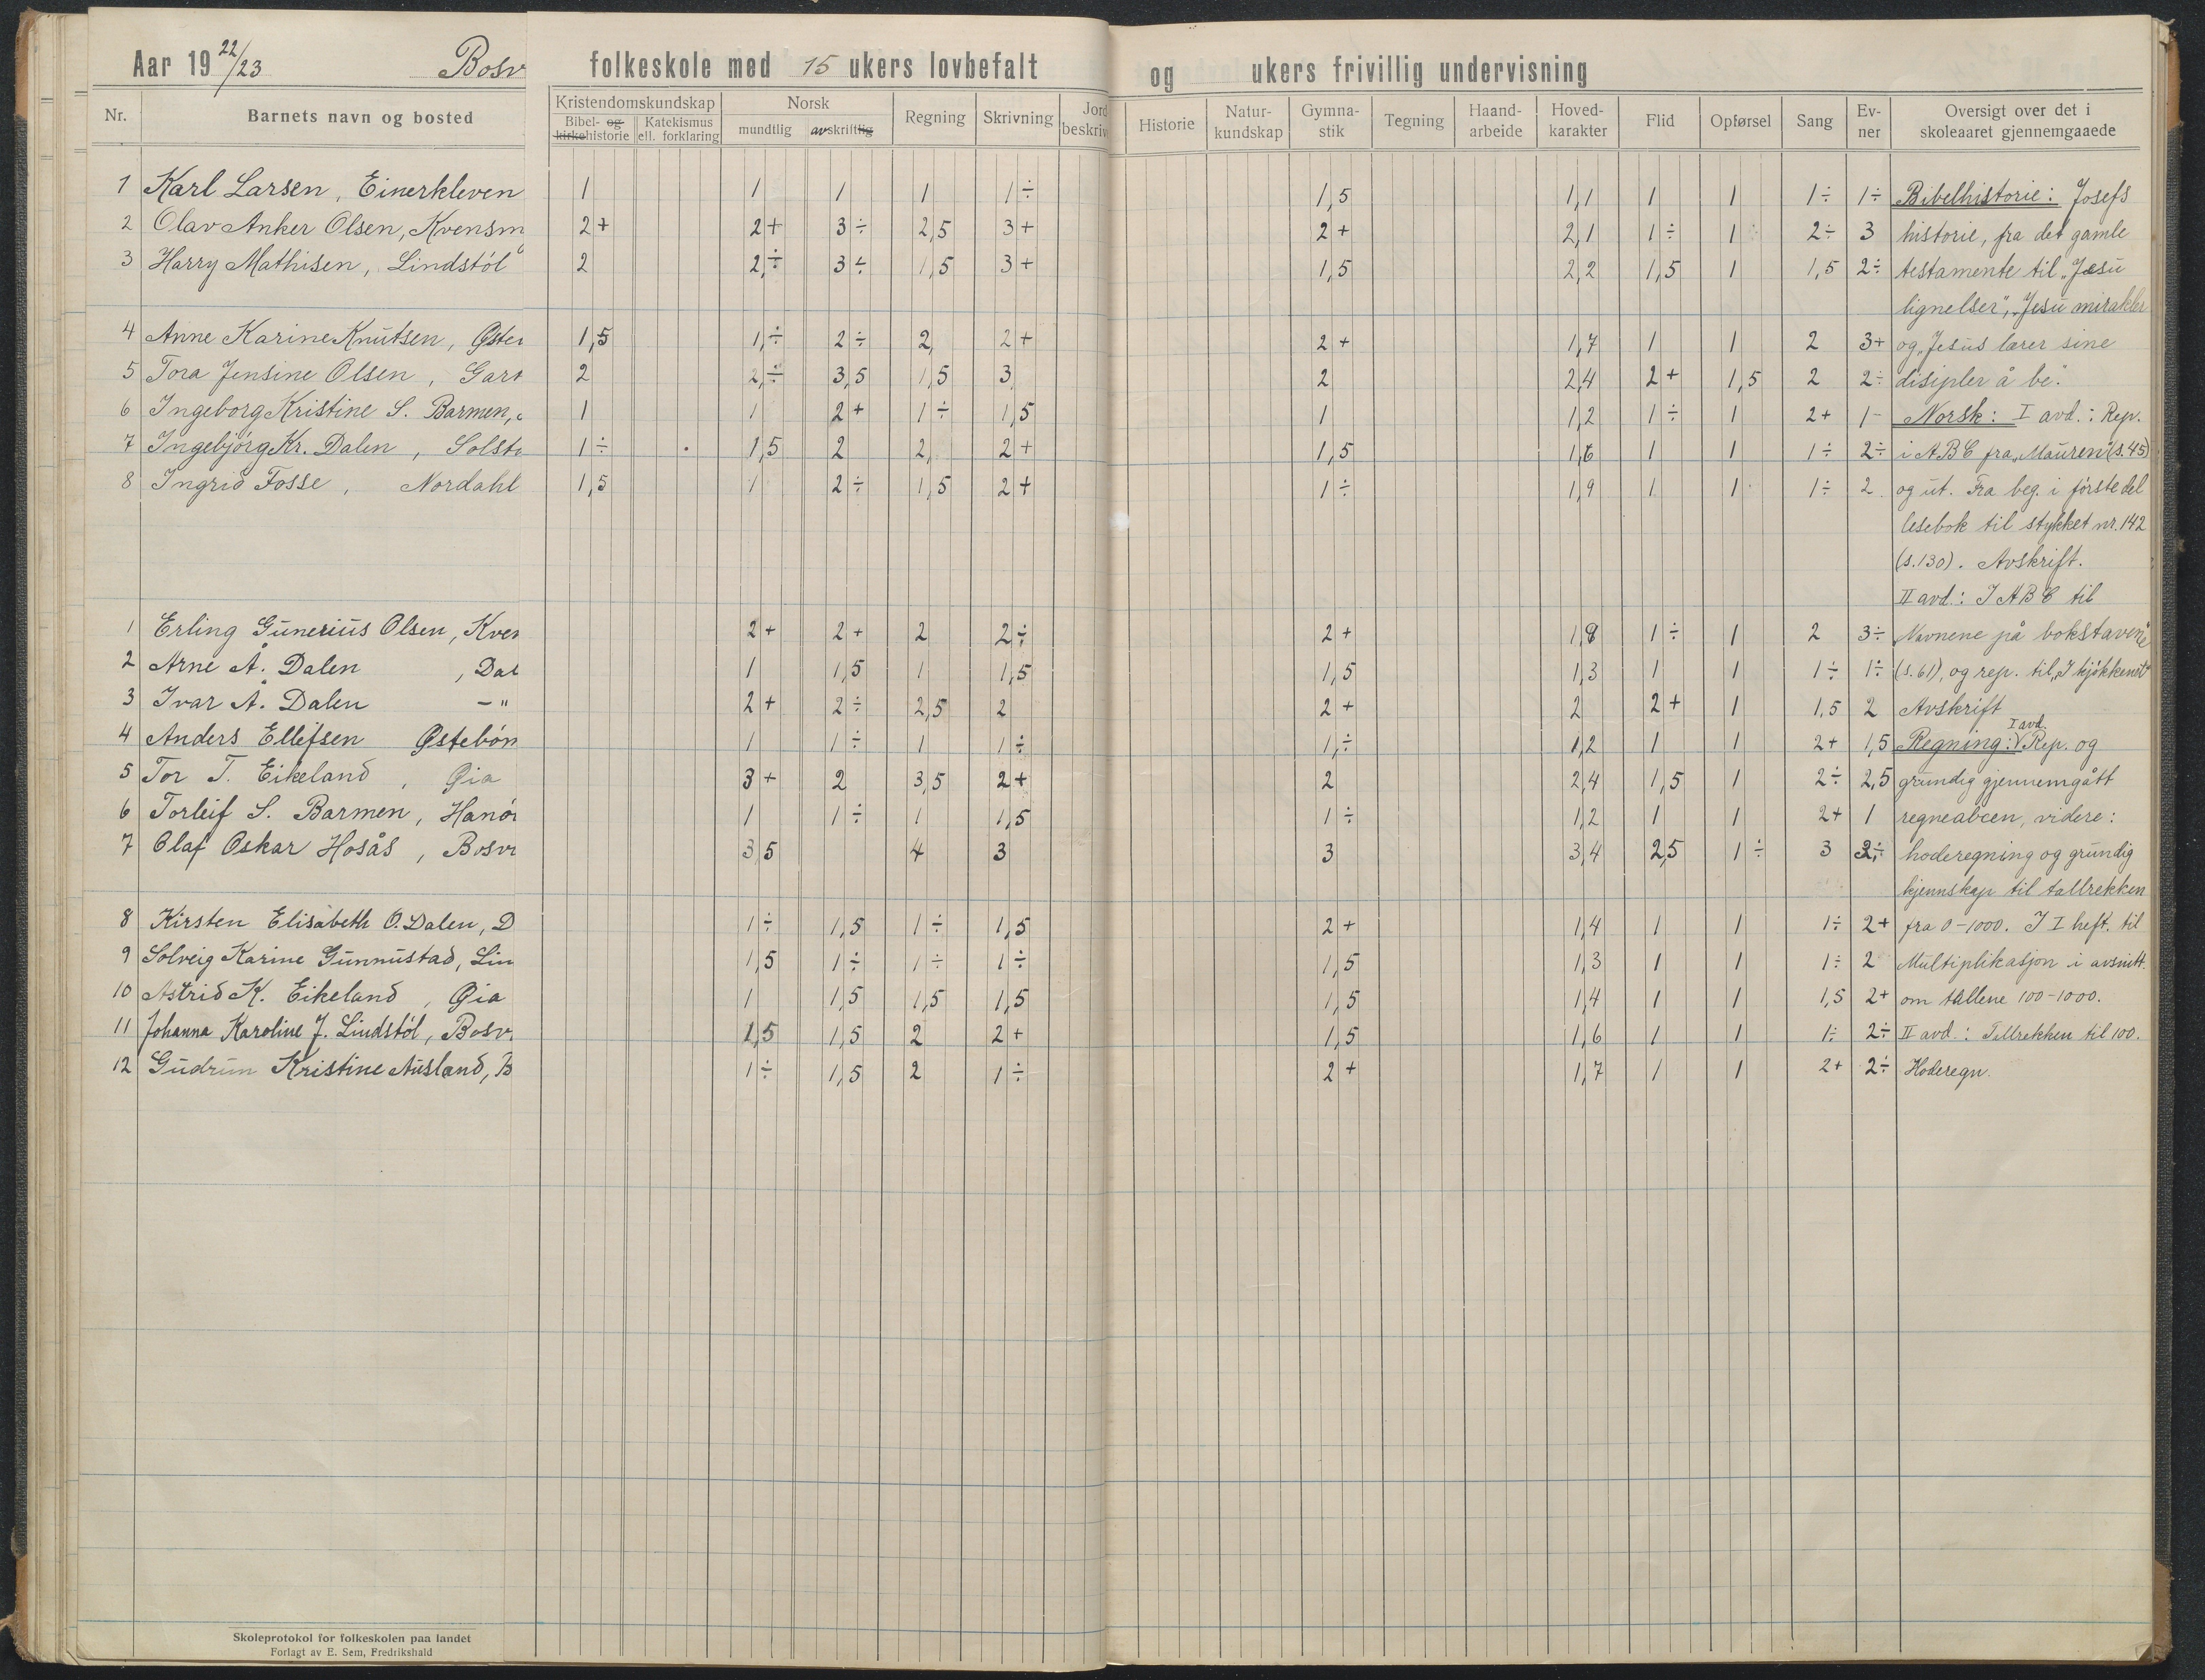 Aar 19 22/23 Bosv folkeskole med 15 ukers lovbefalt og ukers frivillig undervisning
Nr. Barnets navn og bosted Kristendomskundskap Norsk Regning Skrivning Jord beskriv Historie Natur-kundskap Gymna-stik Tegning Haand-arbeide Hoved-karakter Flid Opførsel Sang Ev-ner Oversigt over det i skoleaaret gjennemgaaede
Bibel- og kirkehistorie Katekismus ell. forklaring mundtlig avskriftlig
1 Karl Larsen, Einerkleven 1 1 1 1 1÷ 1,5 1,1 1 1 1÷ 1÷ Bibelhistorie: Josefs
2 Olav Anker Olsen, Kvensm 2+ 2+ 3÷ 2,5 3+ 2+ 2,1 1÷ 1 2÷ 3 historie, fra det gamle
3 Harry Mathisen, Lindstöl 2 2÷ 3÷ 1,5 3+ 1,5 2,2 1,5 1 1,5 2÷ testamente til „Jesu
lignelser", „Jesu mirakler
4 Anne Karine Knutsen, Øster 1,5 1÷ 2÷ 2 2+ 2+ 1,7 1 1 2 3+ og „Jesus lærer sine
5 Tora Jensine Olsen, Gar 2 2÷ 3,5 1,5 3 2 2,4 2+ 1,5 2 2÷ disipler å be".
6 Ingeborg Kristine S. Barmen, 1 1 2+ 1÷ 1,5 1 1,2 1÷ 1 2+ 1- Norsk: I avd.: Rep.
7 Ingebjörg Kr. Dalen, Solst 1÷ 1,5 2 2 2+ 1,5 1,6 1 1 1÷ 2÷ i ABC fra „Mauren" (s.45)
8 Ingrid Fosse, Nordahl 1,5 1 2÷ 1,5 2+ 1÷ 1,9 1 1 1÷ 2 og ut. Fra beg. i første del
lesebok til stykket nr. 142
(s.130). Avskrift.
II avd.: I ABC til
1 Erling Gunerius Olsen, Kven 2+ 2+ 2 2÷ 2+ 1,8 1÷ 1 2 3÷ „Navnene på bokstavene"
2 Arne Å. Dalen, Dal 1 1,5 1 1,5 1,5 1,3 1 1 1÷ 1÷ (s.61), og rep. til „I kjökkenet"
3 Ivar Å. Dalen -"- 2+ 2÷ 2,5 2 2+ 2 2+ 1 1,5 2 Avskrift
4 Anders Ellefsen Østebön 1 1÷ 1 1÷ 1÷ 1,2 1 1 2+ 1,5 Regning: I avd. Rep. og
5 Tor T. Eikeland, Øia 3+ 2 3,5 2+ 2 2,4 1,5 1 2÷ 2,5 grundig gjennemgått
6 Torleif S. Barmen, Hanö 1 1÷ 1 1,5 1÷ 1,2 1 1 2+ 1 regneabcen, videre:
7 Olaf Oskar Hosås, Bosv 3,5 4 3 3 3,4 2,5 1÷ 3 3÷ hoderegning og grundig
kjennskap til tallrekken
8 Kirsten Elisabeth O. Dalen, D 1÷ 1,5 1÷ 1,5 2+ 1,4 1 1 1÷ 2+ fra 0-1000. I I heft. til
9 Solveig Karine Gunnustad, Lin 1,5 1÷ 1÷ 1÷ 1,5 1,3 1 1 1÷ 2 Multiplikasjon i avsnitt.
10 Astrid K. Eikeland, Øia 1 1,5 1,5 1,5 1,5 1,4 1 1 1,5 2+ om tallene 100-1000.
11 Johanna Karoline J. Lindstöl, Bosv. 1,5 1,5 2 2+ 1,5 1,6 1 1 1÷ 2÷ II avd.: Tallrekken til 100.
12 Gudrun Kristine Ausland, B 1÷ 1,5 2 1÷ 2+ 1,7 1 1 2+ 2÷ Hoderegn.
Skoleprotokol for folkeskolen paa landet
Forlagt av E. Sem, Fredrikshald